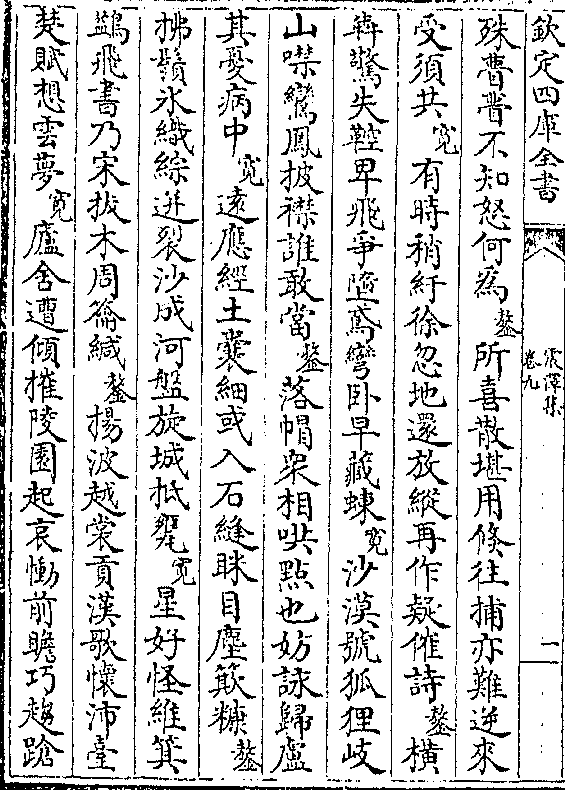 欽定四庫全書
震澤集
卷九
一
殊瞢瞢不知怒何為鏊所喜散堪用倐往捕亦難逆來
受須共寛有時稍紓徐忽地還放縱再作疑催詩鏊橫
犇驚失鞚卑飛爭墮鳶彎卧早藏蝀寛沙漠號狐狸岐
山噤鸞鳳披襟誰敢當鏊落帽衆相哄點也妨詠歸盧
其憂病中寛遠應經土囊細或入石縫眯目塵簸糠鏊
拂鬚氷織綜迸裂沙成河盤旋城抵甕寛星好怪維箕
鷁飛書乃宋拔木周籥緘鏊揚波越裳貢漢歌懷沛臺
楚賦想雲夢寛廬舍遭傾摧陵園起哀慟前瞻巧趨蹌